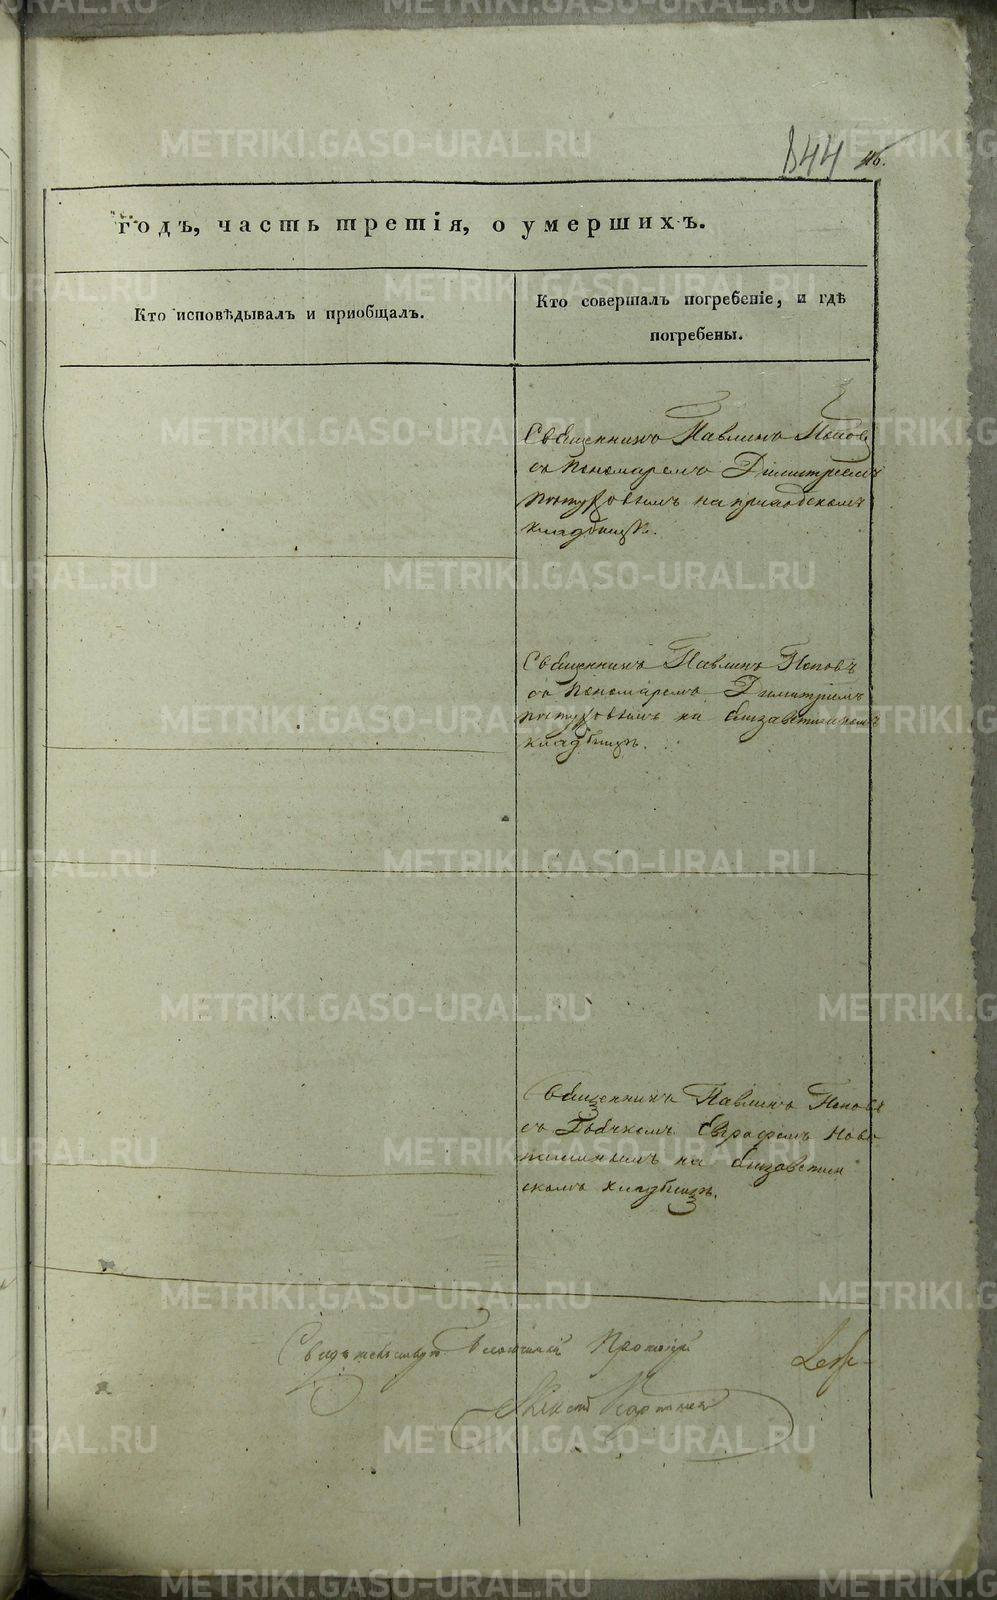 844
годъ, часть третія, о умершихъ.
Кто исповѣдывалъ и приобщалъ.
Кто совершалъ погребеніе, и гдѣ
погребены.
Священникъ Павлинъ Попов
съ Пономаремъ Димитріемъ
на приходскомъ
кладбищѣ.
Священникъ Павлинъ Поповъ
съ Пономаремъ Димитріемъ
на Елизаветинскомъ
кладбищѣ.
Священникъ Павлинъ Поповъ
съ Дьячкомъ Евграфомъ Ново
на Елизаветин
скомъ кладбищѣ.
Свидѣтельствую Благочинный Протоіерей
METRIKI.GASO-URAL.RU